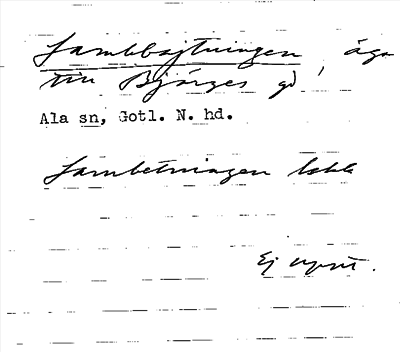 Lambbajtningen, äga
till Björges gd,
Ala sn, Gotl. N. hd.
Lambetningen
Ej uppt.